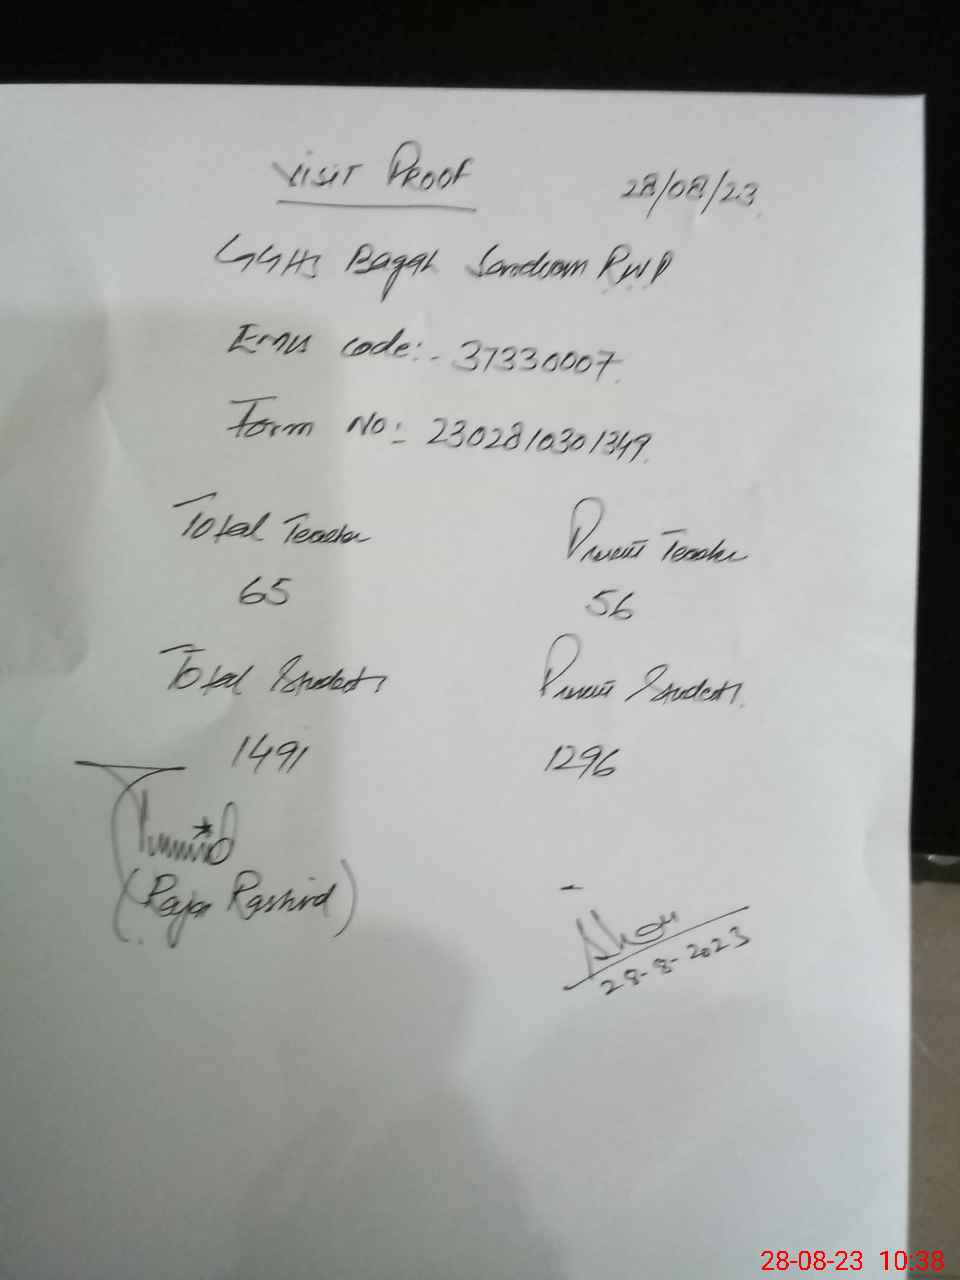 VISIT PROOF 28/08/23
GGHS Bagah Sandram RWP
Emis code:- 37330007
Form No:- 2302810301349
Total Teacher Present Teacher
65 56
Total Students Present Students
1491 1296
(Raja Rashid)
28-8-2023
28-08-23 10:38